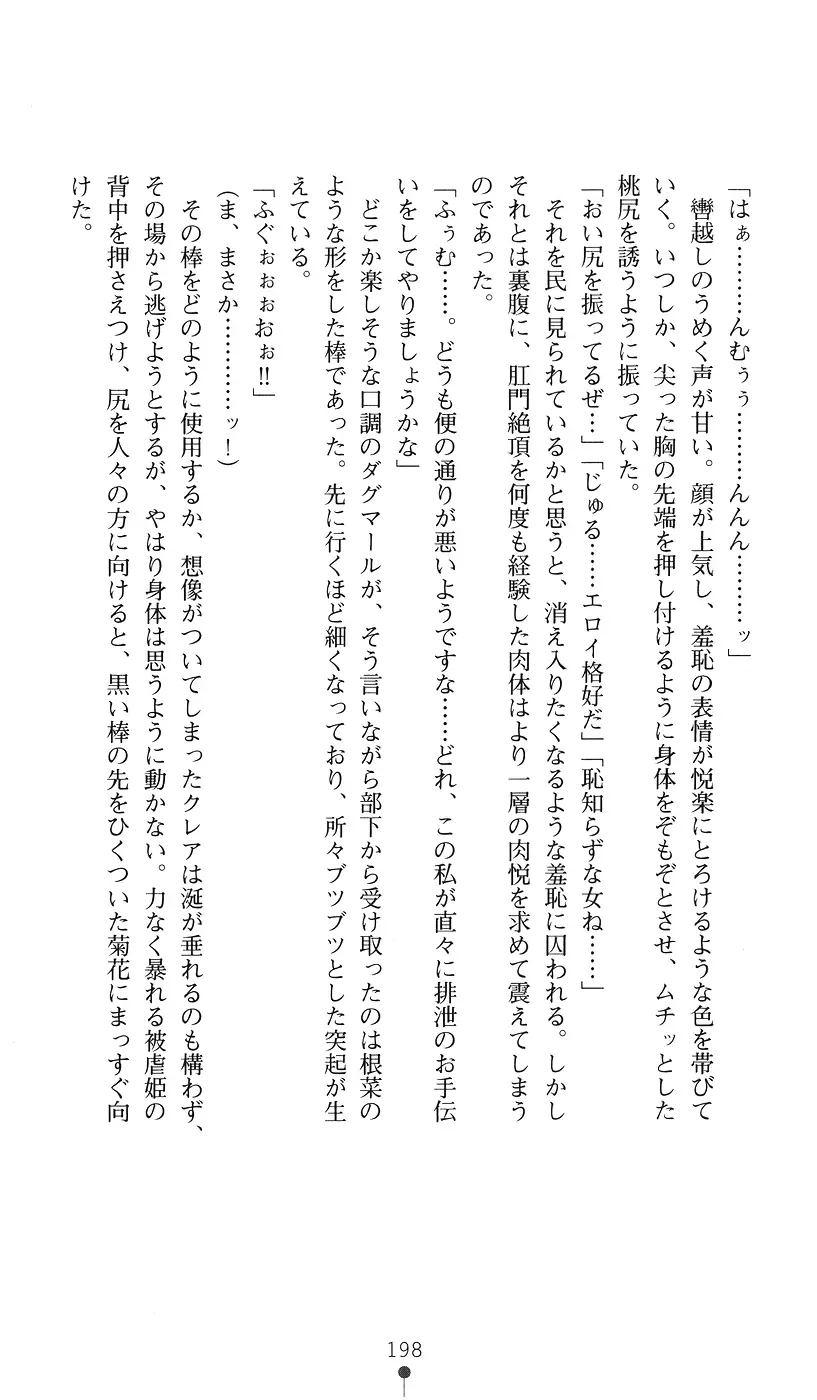 「はぁ………んむぅぅ………んんん………ッ」
　轡越しのうめく声が甘い。顔が上気し、羞恥の表情が悦楽にとろけるような色を帯びて
いく。いつしか、尖った胸の先端を押し付けるように身体をぞもぞとさせ、ムチッとした
桃尻を誘うように振っていた。
「おい尻を振ってるぜ…」「じゅる……エロイ格好だ」「恥知らずな女ね……」
　それを民に見られているかと思うと、消え入りたくなるような羞恥に囚われる。しかし
それとは裏腹に、肛門絶頂を何度も経験した肉体はより一層の肉悦を求めて震えてしまう
のであった。
「ふぅむ……。どうも便の通りが悪いようですな……どれ、この私が直々に排泄のお手伝
いをしてやりましょうかな」
　どこか楽しそうな口調のダグマールが、そう言いながら部下から受け取ったのは根菜の
ような形をした棒であった。先に行くほど細くなっており、所々ブツブツとした突起が生
えている。
「ふぐぉぉぉおぉ!!」
（ま、まさか…………ッ！）
　その棒をどのように使用するか、想像がついてしまったクレアは涎が垂れるのも構わず、
その場から逃げようとするが、やはり身体は思うように動かない。力なく暴れる被虐姫の
背中を押さえつけ、尻を人々の方に向けると、黒い棒の先をひくついた菊花にまっすぐ向
けた。
198